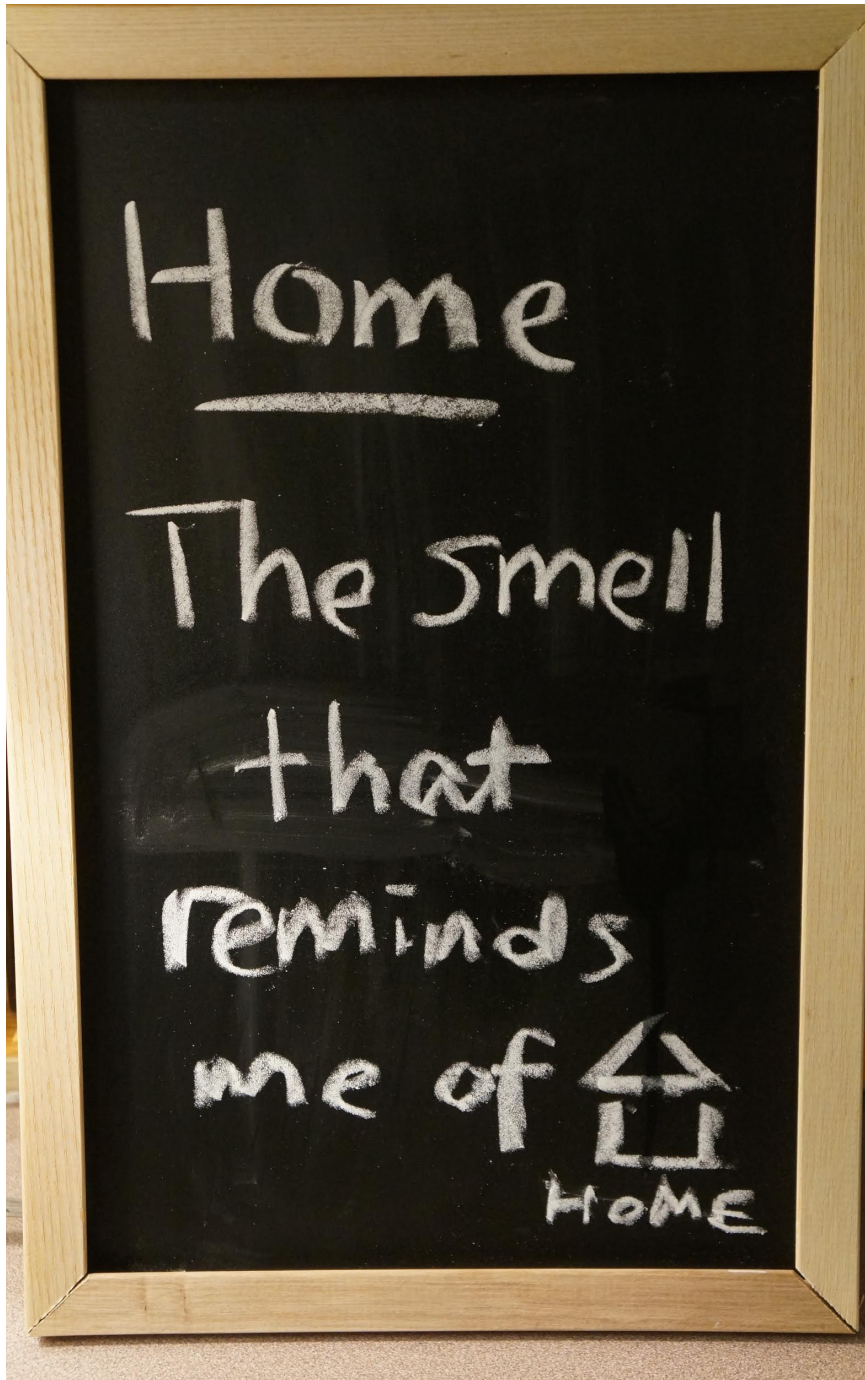 Home
The smell
that
reminds
me of
HOME